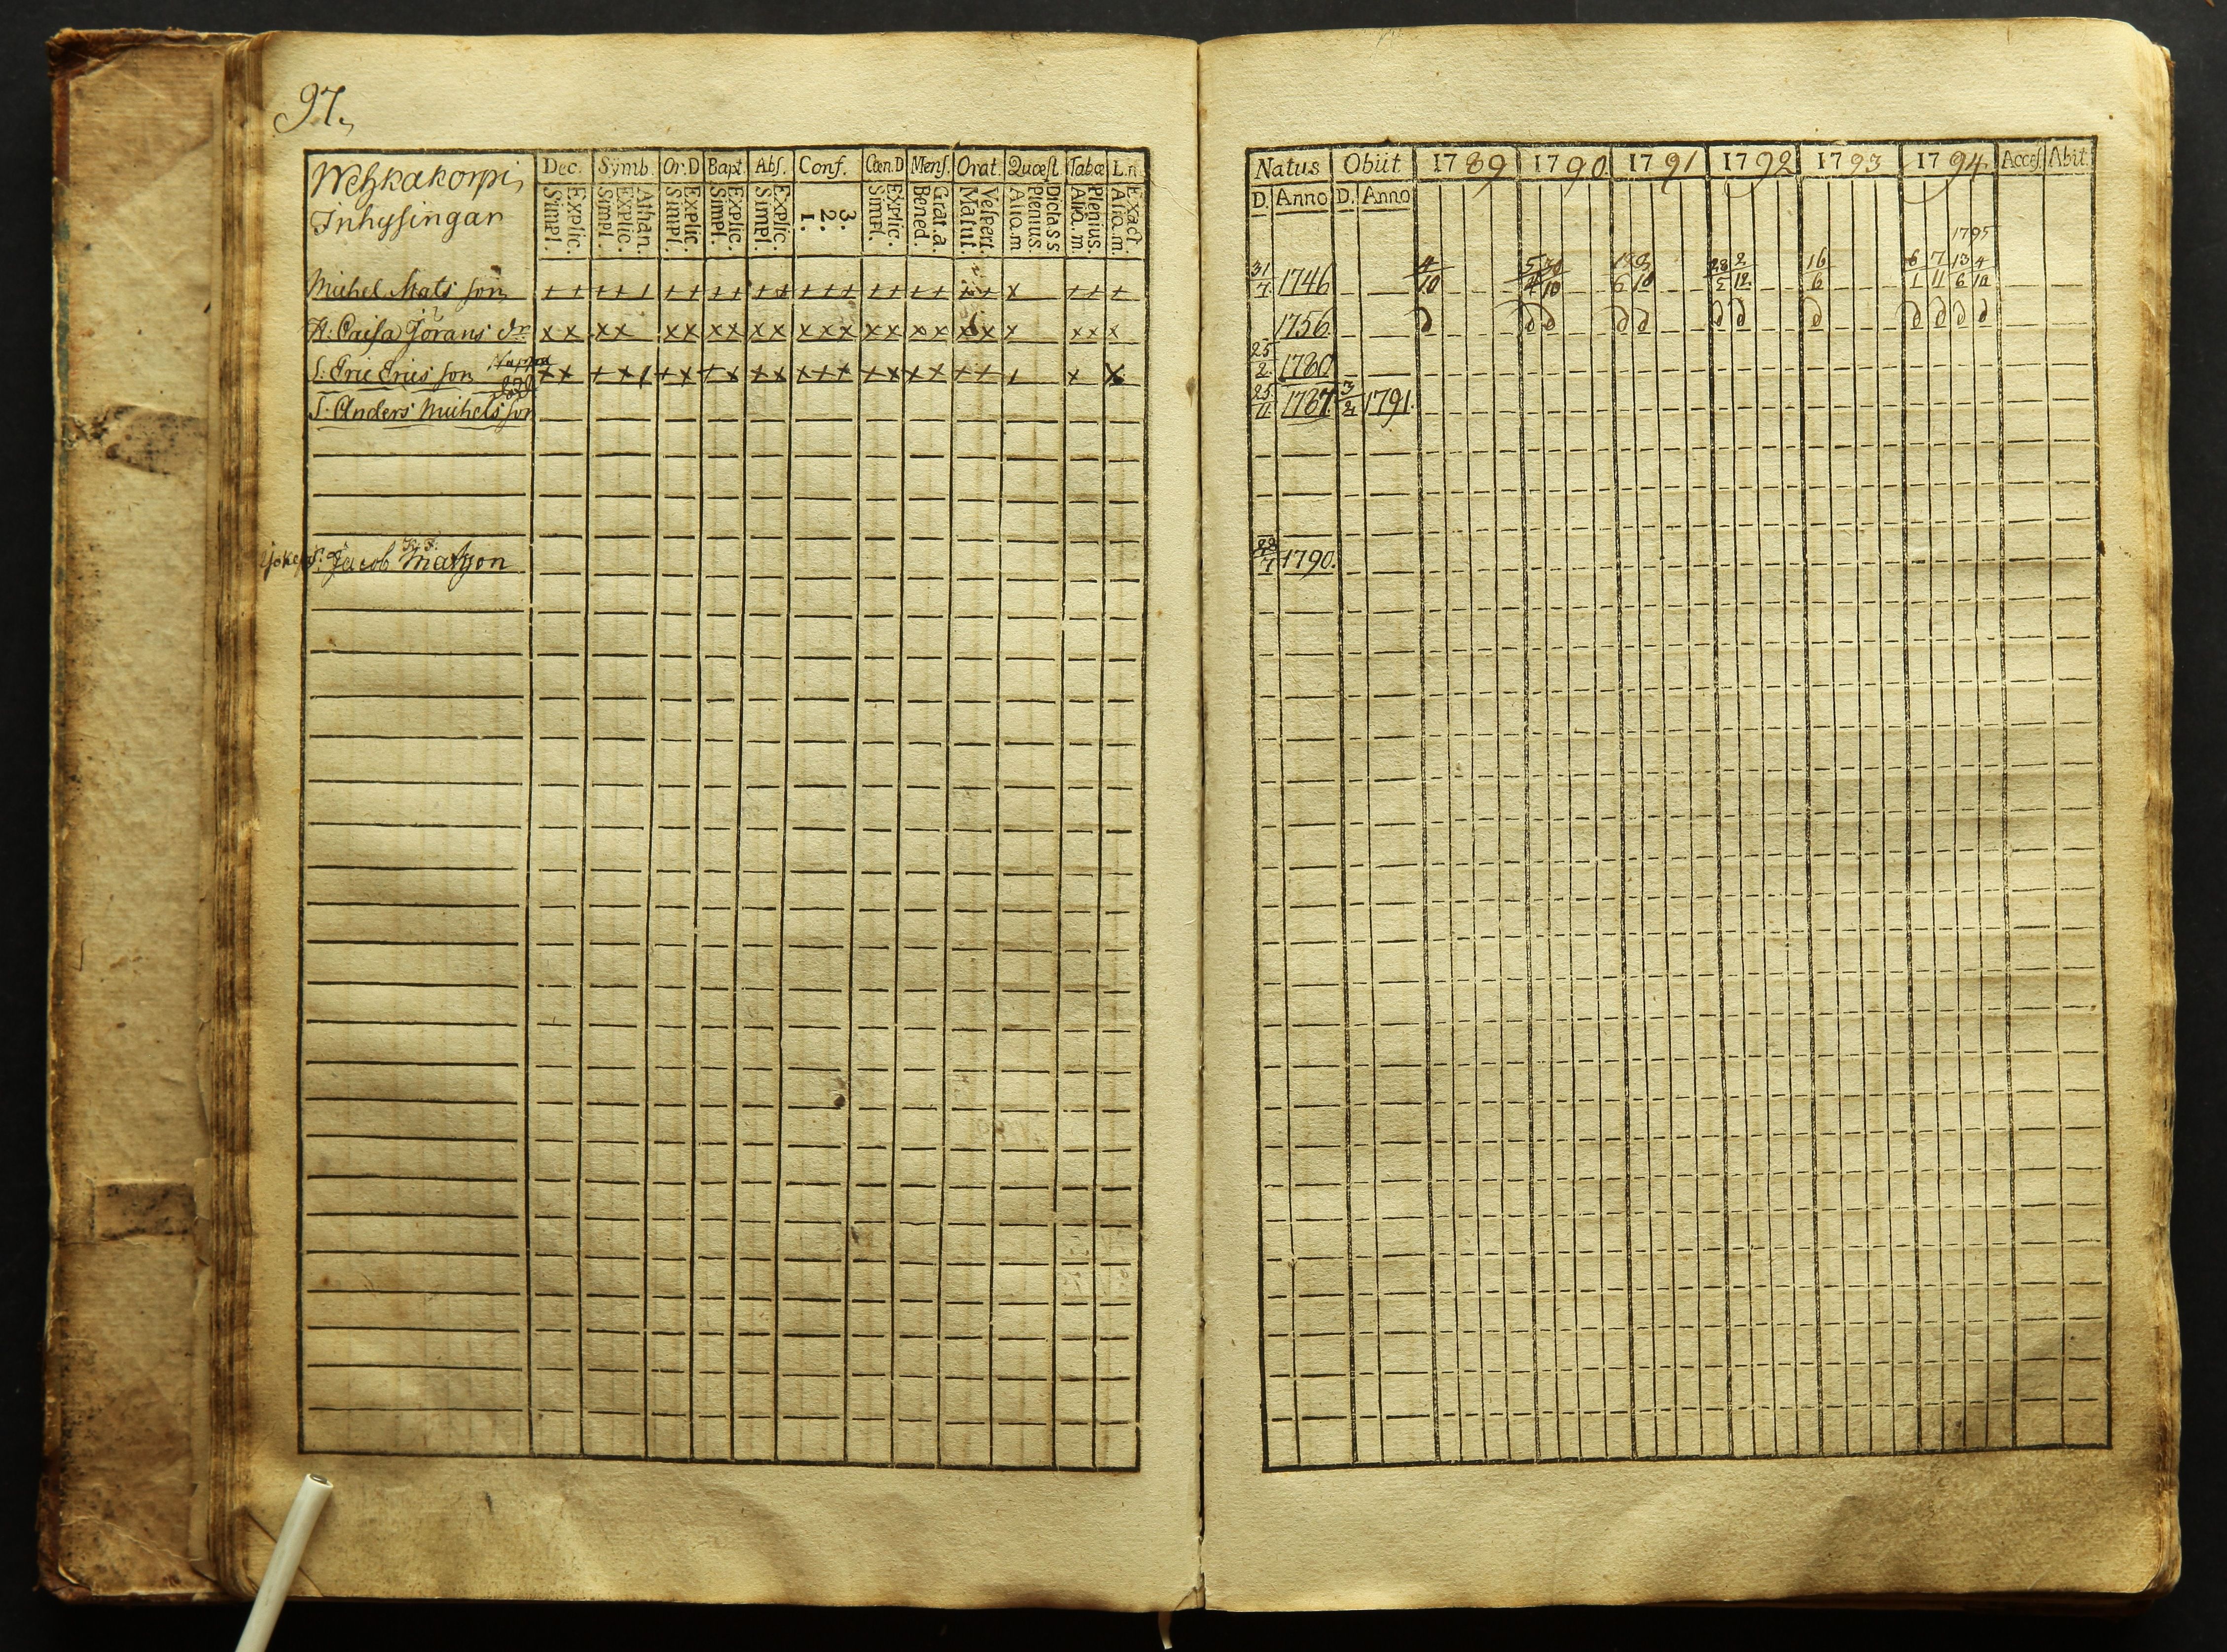 97.
Dec. Symb. Or.D Bapt. Abs. Conf. Cœn.D Mens. Orat. Quæst. Tabæ L.n.
Wehkakorpi
Inhysingar
Simpl. Explic. Simpl. Explic. Athan. Simpl. Explic. Simpl. Explic. Simpl. Explic. 1. 2. 3. Simpl. Explic. Bened. Grat.a. Matut. Vespert. Alio.m Plenius. Dicta.s s Alio.m. Plenius. Alio.m. Exact.
Michel Mats son + + + + + + + + + + + + + + + + + + + + x + + +
H: Caisa Jörans dr x x x x x x x x x x x x x x x x x x x x x x x
S: Eric Erics son x x + x + x + x x x + + + x x x x + + + x x
S: Anders Michels son
S: Jacob Matzson
Natus Obiit 1789 1790 1791 1792 1793 1794 Access. Abit.
D. Anno D. Anno
1795
31/7 1746 4/10 16/6 6/1 7/11 13/6 4/10
1756 d d d d d d d d d d d d
25/2 1780
25/11 1787. 3/2 1791.
1790.